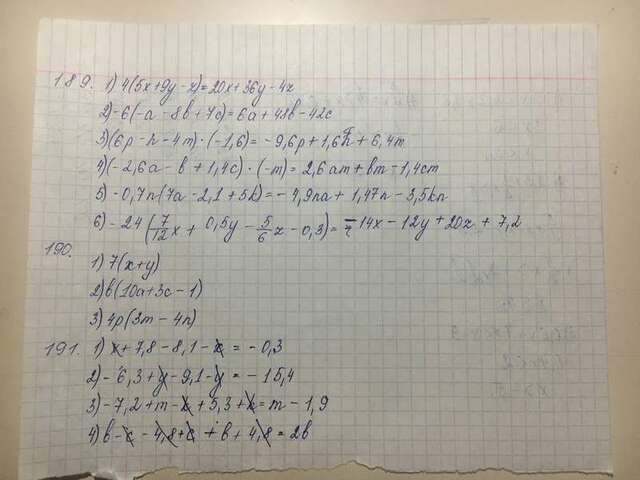 189. 1) 4(5x+9y-z)=20x+36y-4z
2) -6(-a-8b+7c)=6a+48b-42c
3) (6p-n-4m)·(-1,6)=-9,6p+1,6n+6,4m
4) (-2,6a-b+1,4c)·(-m)=2,6am+bm-1,4cm
5) -0,7n(7a-2,1+5k)=-4,9na+1,47n-3,5kn
6) -24(7/12x+0,5y-5/6z-0,3)=-14x-12y+20z+7,2
190.
1) 7(x+y)
2) 6(20a+3c-1)
3) 4p(3m-4n)
191. 1) x+7,8-8,1-x=-0,3
2) -6,3+y-9,1-y=-15,4
3) -7,2+m-x+5,3+x=m-1,9
4) b-x-4,8+x+b+4,8=2b